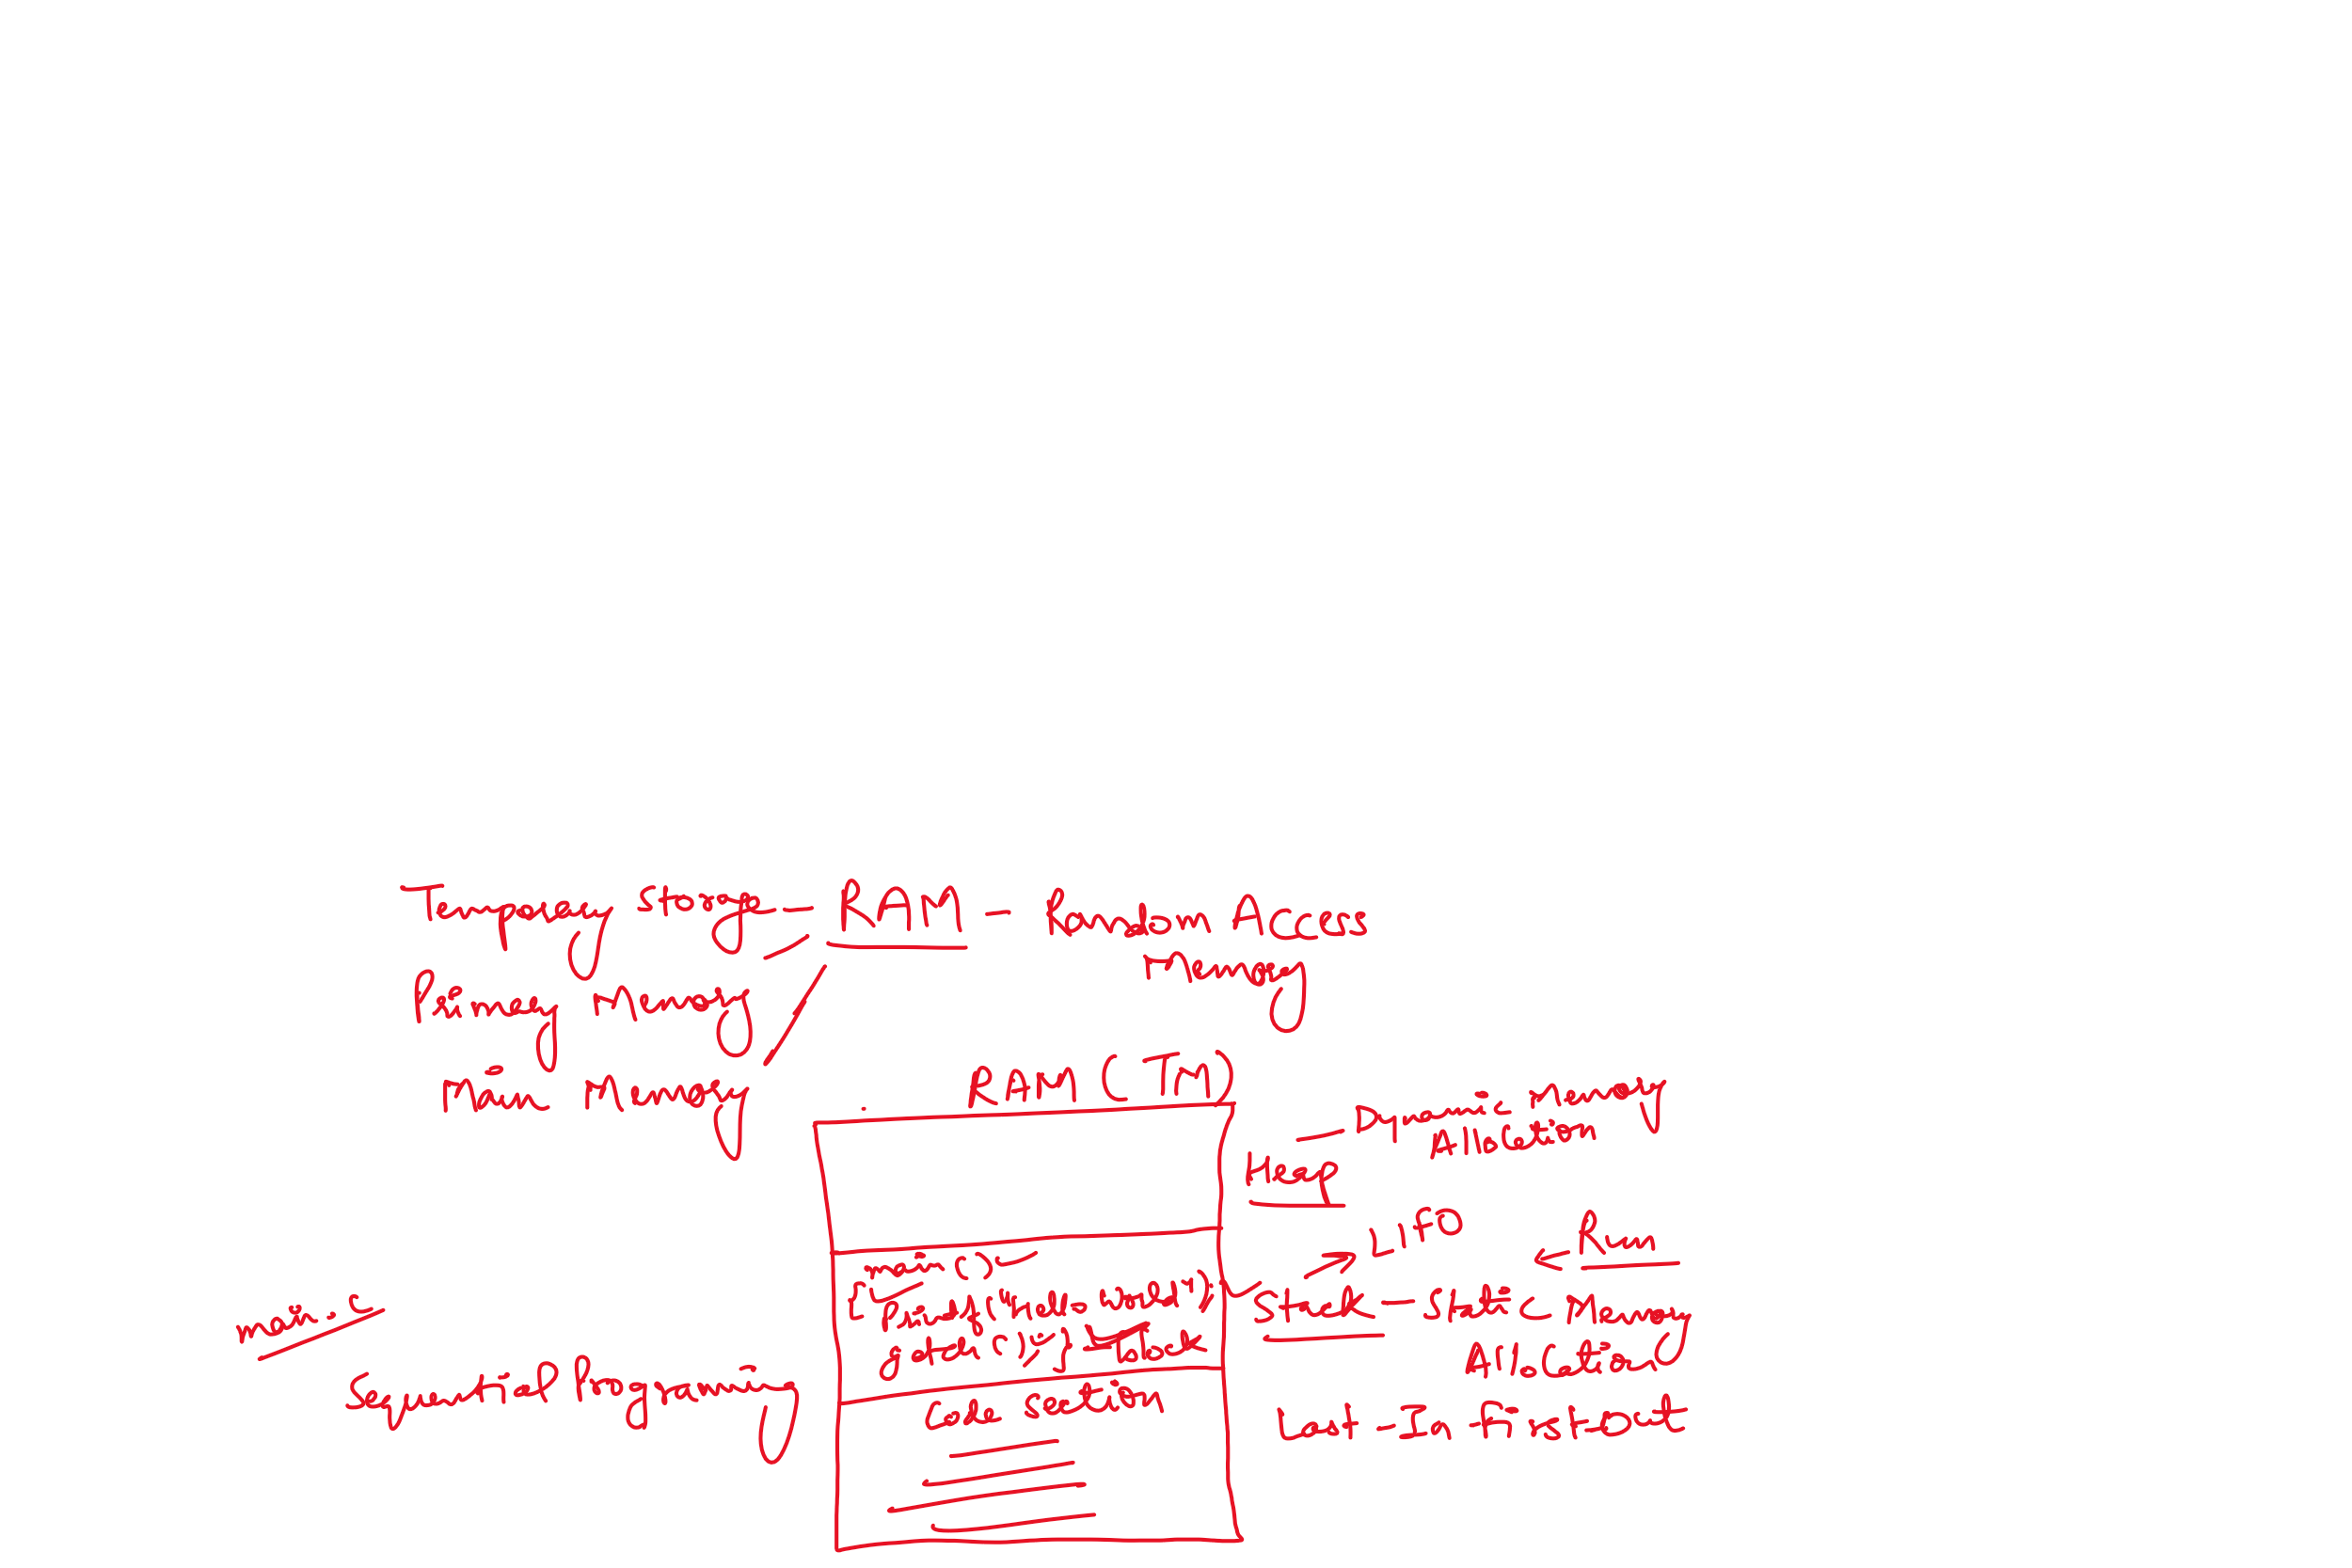 Temporary Storage - RAM - Random Access
Memory
Permanent Memory
Main Memory
RAM (TM)
Heap - Dynamic memory
Allocation
main() {
int
printf("Hello world");
getch(); return
Code section
Stack - Static memory
Allocation
LIFO
<- Run
Last - In first - out
main.c
Sequential programming